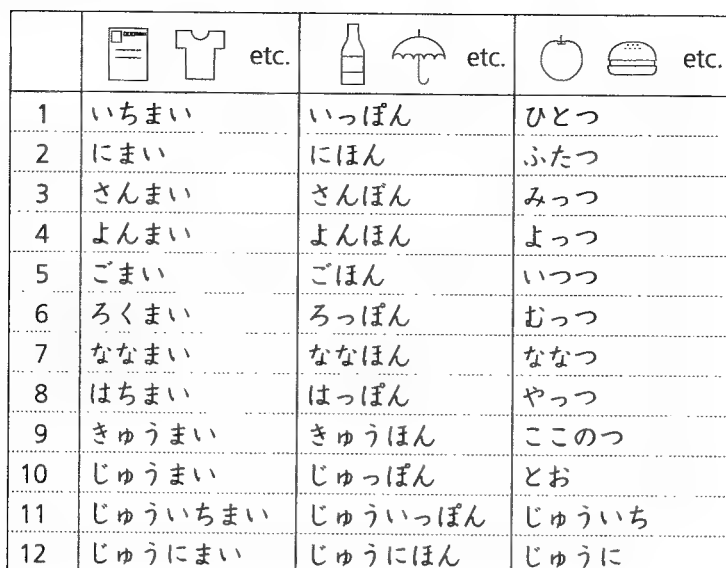 etc. etc. etc.
1 いちまい いっぽん ひとつ
2 にまい にほん ふたつ
3 さんまい さんぼん みっつ
4 よんまい よんほん よっつ
5 ごまい ごほん いつつ
6 ろくまい ろっぽん むっつ
7 ななまい ななほん ななつ
8 はちまい はっぽん やっつ
9 きゅうまい きゅうほん ここのつ
10 じゅうまい じゅっぽん とお
11 じゅういちまい じゅういっぽん じゅういち
12 じゅうにまい じゅうにほん じゅうに